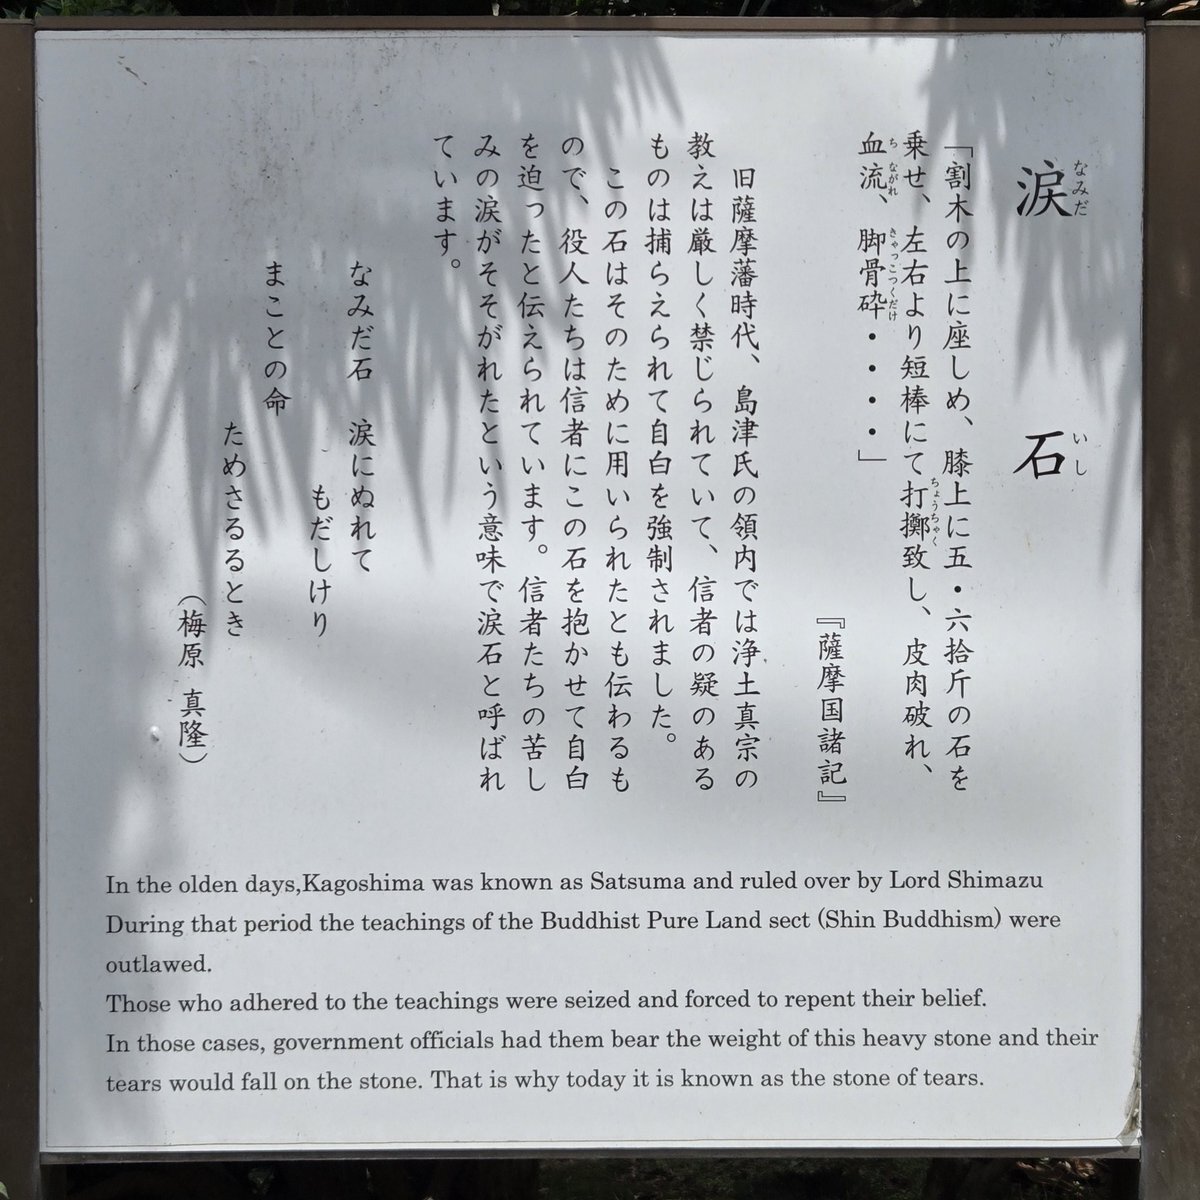 涙石
なみだ いし
「割木の上に座しめ、膝上に五・六拾斤の石を
乗せ、左右より短棒にて打擲致し、皮肉破れ、
ちょうちゃく
血流、脚骨砕・・・・」
ち ながれ きゃっこつくだけ
『薩摩国諸記』
旧薩摩藩時代、島津氏の領内では浄土真宗の
教えは厳しく禁じられていて、信者の疑のある
ものは捕らえられて自白を強制されました。
この石はそのために用いられたとも伝わるも
ので、役人たちは信者にこの石を抱かせて自白
を迫ったと伝えられています。信者たちの苦し
みの涙がそそがれたという意味で涙石と呼ばれ
ています。
なみだ石 涙にぬれて
もだしけり
まことの命
ためさるるとき
（梅原 真隆）
In the olden days,Kagoshima was known as Satsuma and ruled over by Lord Shimazu
During that period the teachings of the Buddhist Pure Land sect (Shin Buddhism) were
outlawed.
Those who adhered to the teachings were seized and forced to repent their belief.
In those cases, government officials had them bear the weight of this heavy stone and their
tears would fall on the stone. That is why today it is known as the stone of tears.